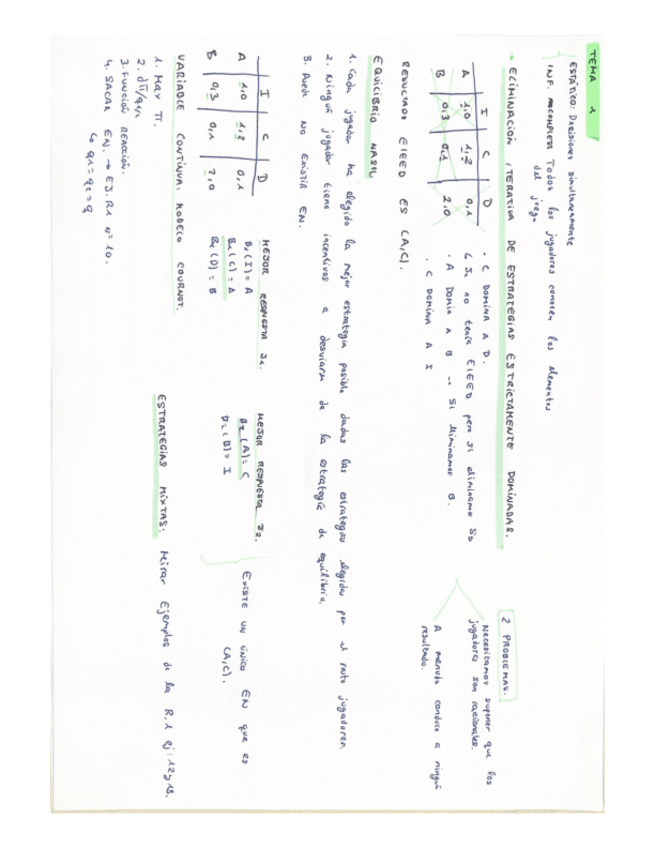 TEMA 1
ESTÁTICO: Decisiones simultáneamente
INF. Todos los jugadores conocen los elementos
del juego
ELIMINACIÓN ITERATIVA DE ESTRATEGIAS ESTRICTAMENTE DOMINADAS.
I C D
A 1,0 1,2 0,1
B 0,3 0,1 2,0
· C DOMINA A D.
↳ J1 no tenía EIEED pero si eliminamos SD
· A Domina A B → Si eliminamos B.
· C DOMINA A I
2 PROBLEMAS.
Necesitamos suponer que los
jugadores son racionales.
A menudo conduce a ningún
resultado.
RESULTADO EIEED ES (A,C).
EQUILIBRIO NASH.
1. Cada jugador ha elegido la mejor estrategia posible dadas las estrategias elegidas por el resto jugadores.
2. Ningún jugador tiene incentivos a desviarse de la estrategia de equilibrio.
3. Puede NO EXISTIR EN.
I C D
A 1,0 1,2 0,1
B 0,3 0,1 2,0
MEJOR RESPUESTA J1.
B1(I) = A
B1(C) = A
B1(D) = B
MEJOR RESPUESTA J2.
B2(A) = C
B2(B) = I
EXISTE UN ÚNICO EN que es
(A,C).
VARIABLE CONTINUA: MODELO COURNOT.
1. MAX π.
2. dπ/
3. FUNCIÓN REACCIÓN.
4. SACAR EN. → EJ. R1 nº 10.
↳ q1 = q2 = q
ESTRATEGIAS MIXTAS: Mirar Ejemplos de la R.1 ej: 12 y 15.